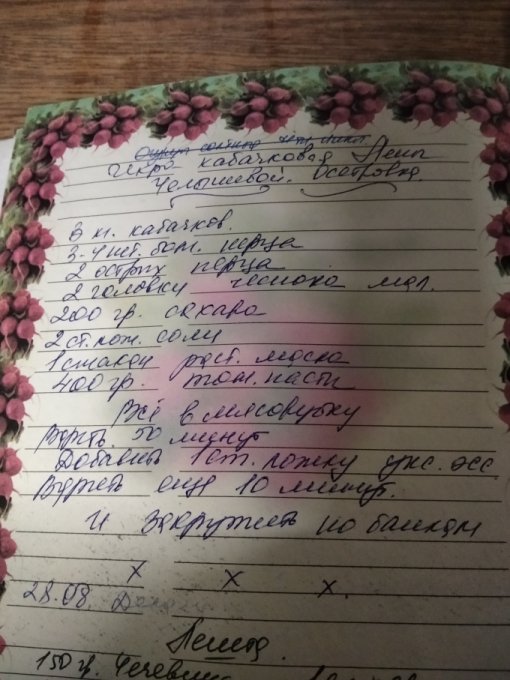 Икра кабачковая Лены
Челышевой. Осетровка.
3 кг. кабачков.
3-4 шт. бол. перца
2 острых перца
2 головки чеснока мал.
200 гр. сахара
2 ст. лож. соли
1 стакан раст. масла
400 гр. том. пасты
Всё в мясорубку
Варить 50 минут
Добавить 1 ст. ложку укс. эсс.
Варить еще 10 минут.
и закружить по банкам
х х х.
28.08.
150 гр.